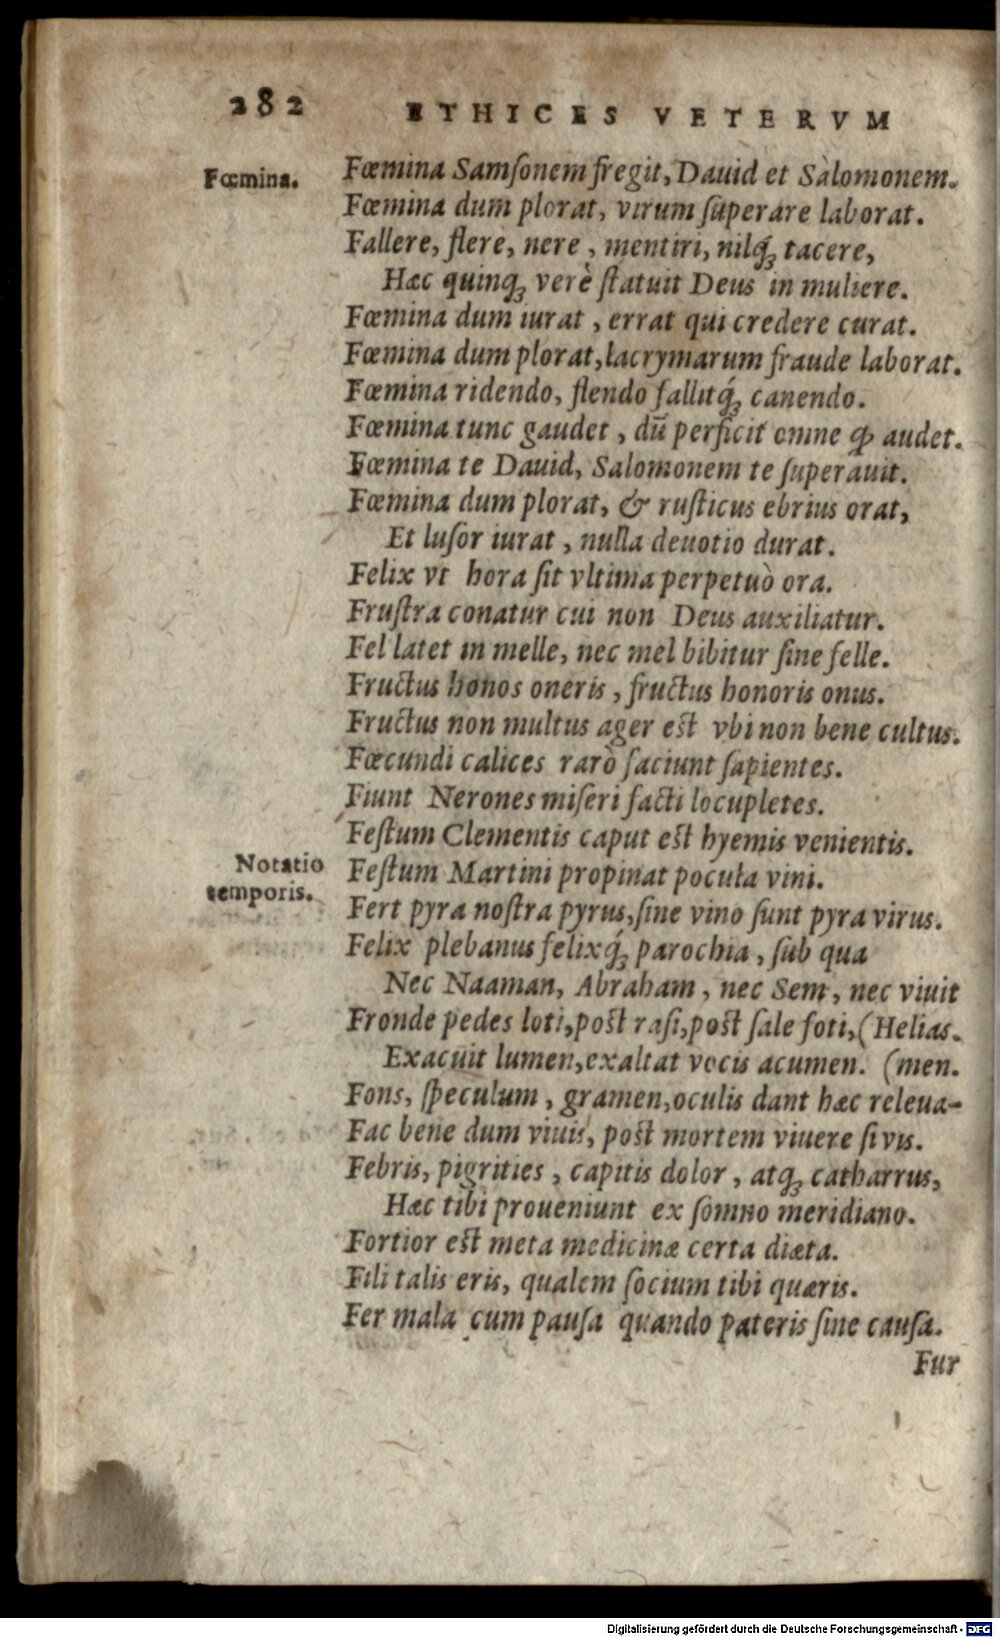 282 ETHICES VETERVM
Fœmina. Fœmina Samſonem fregit, Dauid et Sàlomonem.
Fœmina dum plorat, virum ſuperare laborat.
Fallere, flere, nere, mentiri, nilq́ꝫ tacere,
Hæc quinqꝫ verè ſtatuit Deus in muliere.
Fœmina dum iurat, errat qui credere curat.
Fœmina dum plorat, lacrymarum fraude laborat.
Fœmina ridendo, flendo fallitq́ꝫ canendo.
Fœmina tunc gaudet, dū perficit omne ꝙ audet.
Fœmina te Dauid, Salomonem te ſuperauit.
Fœmina dum plorat, & ruſticus ebrius orat,
Et luſor iurat, nulla deuotio durat.
Felix vt hora ſit vltima perpetuò ora.
Fruſtra conatur cui non Deus auxiliatur.
Fel latet in melle, nec mel bibitur ſine felle.
Fructus honos oneris, fructus honoris onus.
Fructus non multus ager eſt vbi non bene cultus.
Fœcundi calices rarò faciunt ſapientes.
Fiunt Nerones miſeri facti locupletes.
Feſtum Clementis caput eſt hyemis venientis.
Notatio temporis. Feſtum Martini propinat pocula vini.
Fert pyra noſtra pyrus, ſine vino ſunt pyra virus.
Felix plebanus felixq́ꝫ parochia, ſub qua
Nec Naaman, Abraham, nec Sem, nec viuit
Fronde pedes loti, poſt raſi, poſt ſale foti, (Helias.
Exacuit lumen, exaltat vocis acumen. (men.
Fons, ſpeculum, gramen, oculis dant hæc releua-
Fac bene dum viuis, poſt mortem viuere ſi vis.
Febris, pigrities, capitis dolor, atqꝫ catharrus,
Hæc tibi proueniunt ex ſomno meridiano.
Fortior eſt meta medicinæ certa diæta.
Fili talis eris, qualem ſocium tibi quæris.
Fer mala cum pauſa quando pateris ſine cauſa.
Fur
Digitalisierung gefördert durch die Deutsche Forschungsgemeinschaft - DFG